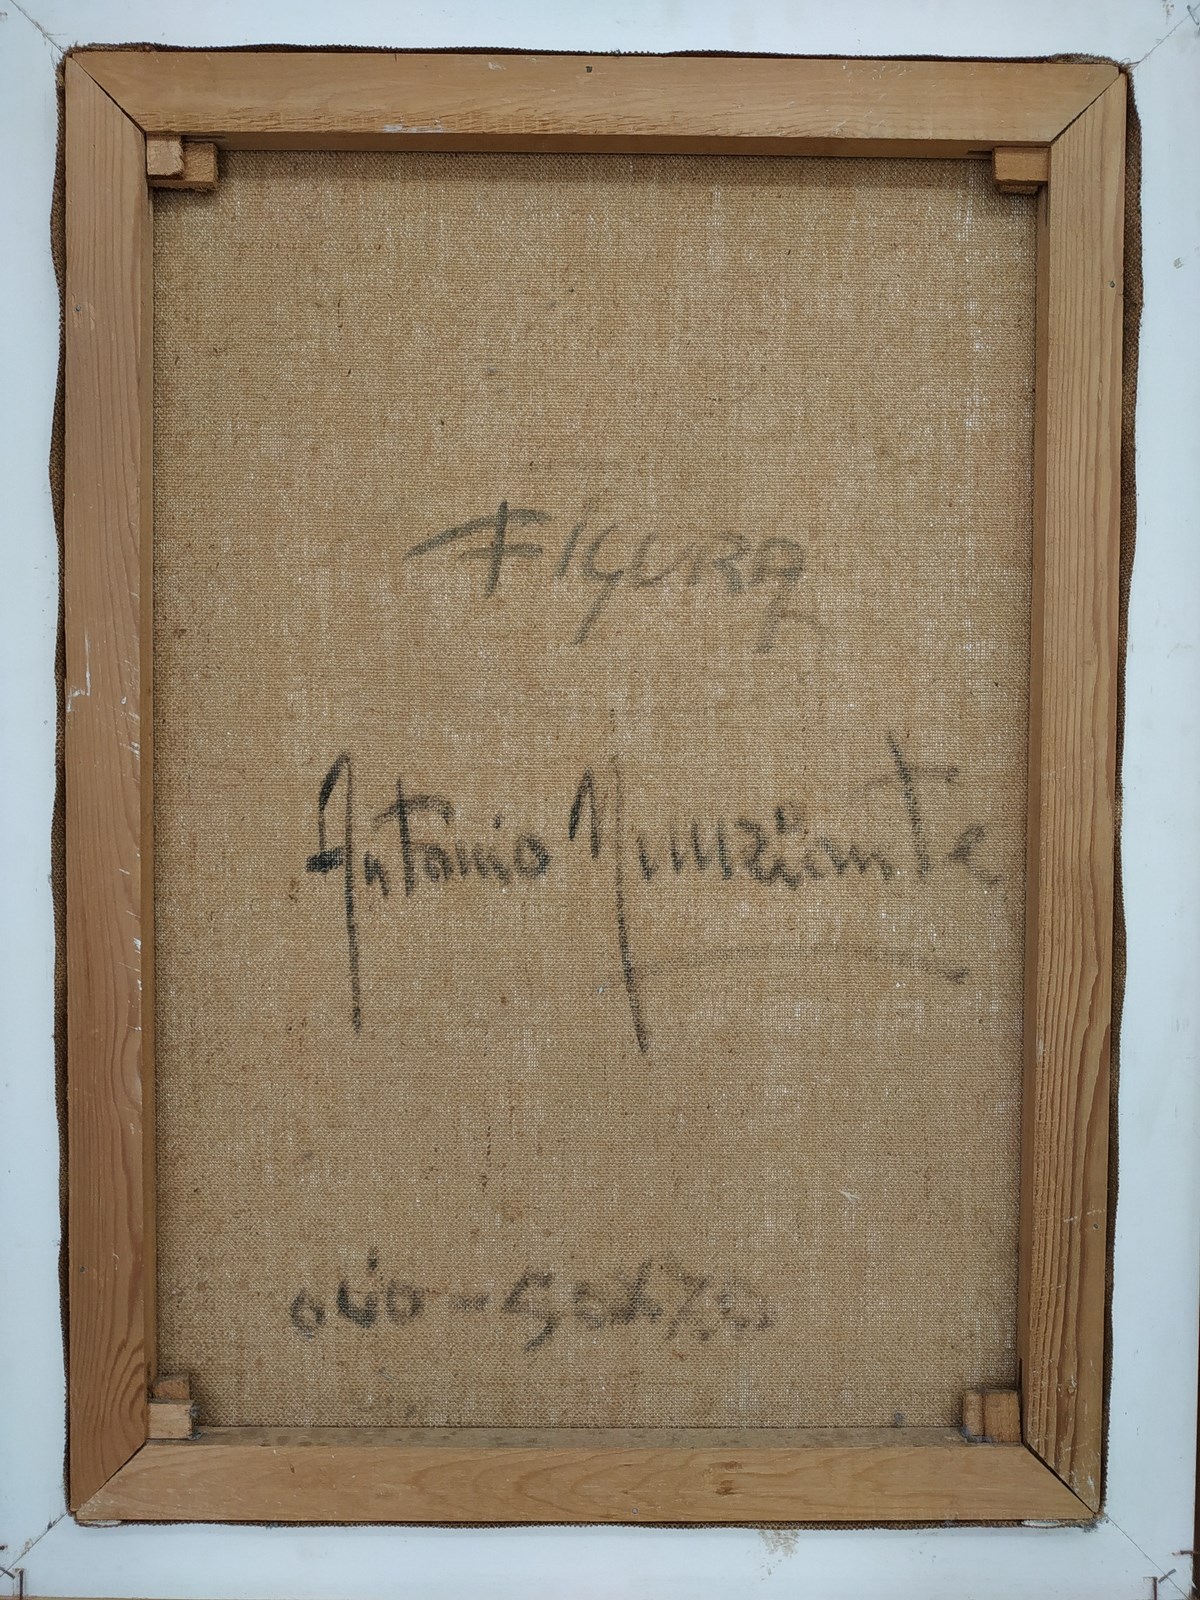 FIGURA
Antonio Nunziante
olio - 50x70